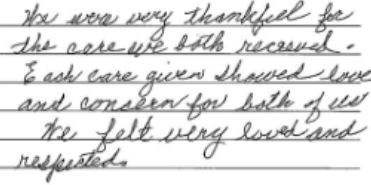 We were very thankful for
the care we both received.
Each care given showed love
and concern for both of us
We felt very loved and
respected.